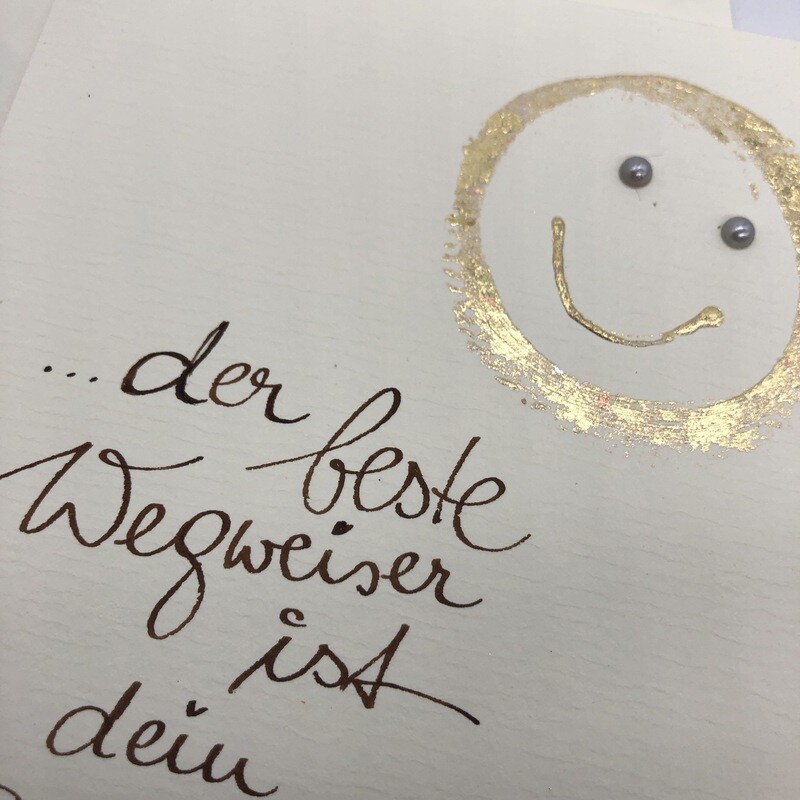 ... der
beste
Wegweiser
ist
dein